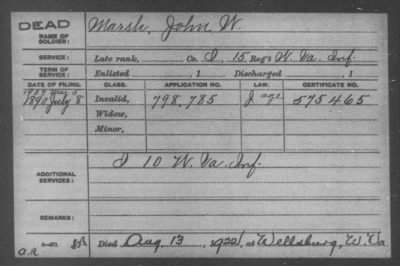 DEAD
NAME OF SOLDIER: Marsh, John W.
SERVICE: Late rank, Co. I, 15 Reg't W. Va. Inf.
TERM OF SERVICE: Enlisted , 1 Discharged , 1
DATE OF FILING. CLASS. APPLICATION NO. LAW. CERTIFICATE NO.
1890 July 8 Invalid, 798,785 J age 575465
Widow,
Minor,
ADDITIONAL SERVICES: I 10 W. Va. Inf.
REMARKS:
Died Aug. 13, 1922, at Wellsburg, W. Va